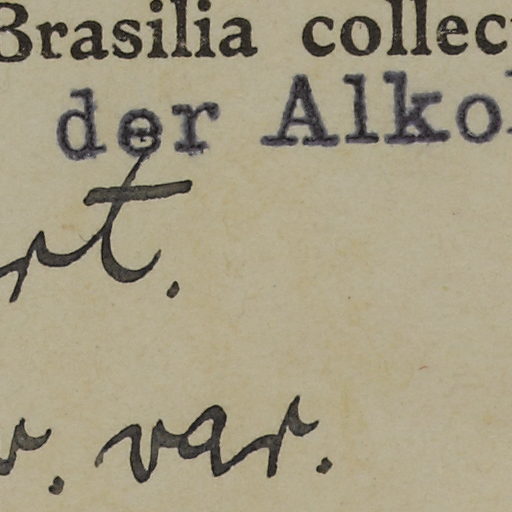 Brasilia collec
der Alko
rt.
r. var.